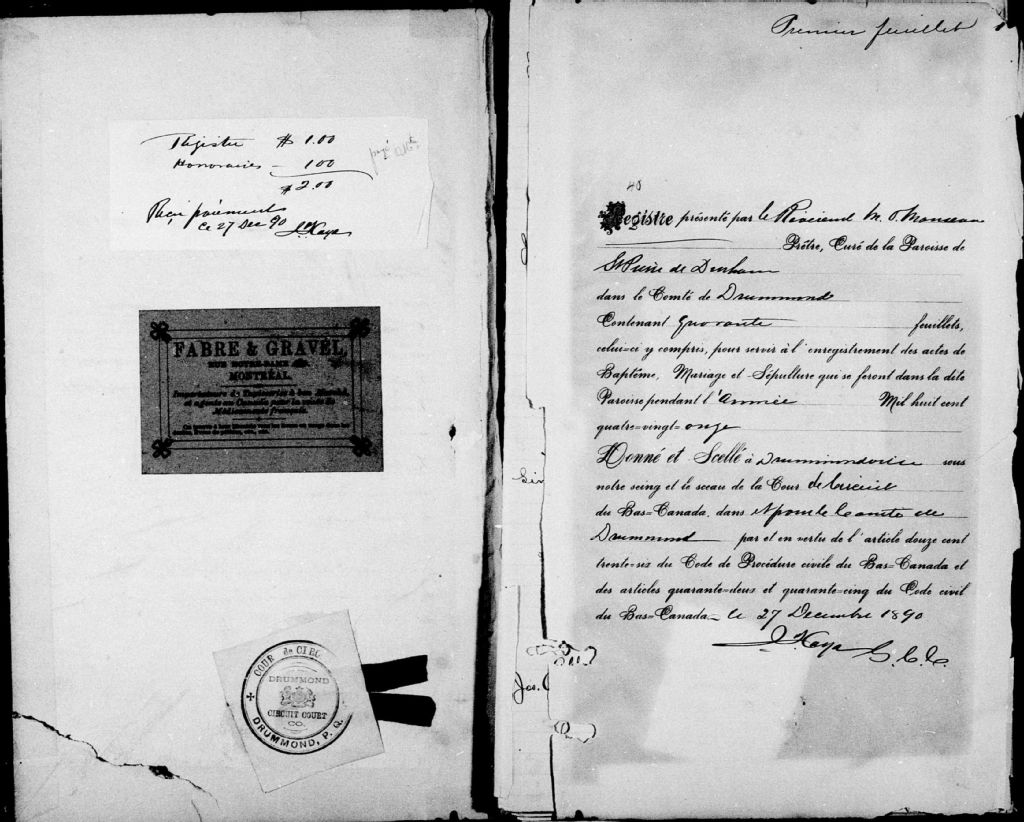 Régistre $ 1.00
Honoraires – 1.00
$ 2.00
payé
Reçu paiement
ce 27 Dec 90 J Kaye
FABRE & GRAVEL,
RUE NOTRE-DAME
MONTRÉAL.
Importateurs
Médicaments français.
COUR de CIRC
DRUMMOND
CIRCUIT COURT
CO.
DRUMMOND, P. Q.
Premier feuillet
40
Registre présenté par le Révérend M. O. Manseau
Prêtre, Curé de la Paroisse de
St Pierre de Durham
dans le Comté de Drummond
Contenant Quarante feuillets,
celui=ci y compris, pour servir à l'enregistrement des actes de
Baptême, Mariage et Sépulture qui se feront dans la dite
Paroisse pendant l'Année Mil huit cent
quatre=vingt=onze
Donné et Scellé à Drummondville sous
notre seing et le sceau de la Cour de Circuit
du Bas=Canada, dans et pour le Comté de
Drummond par et en vertu de l'article douze cent
trente=six du Code de Procédure civile du Bas=Canada et
des articles quarante=deux et quarante=cinq du Code civil
du Bas=Canada le 27 Decembre 1890
J Kaye G. C. C.
Jos.